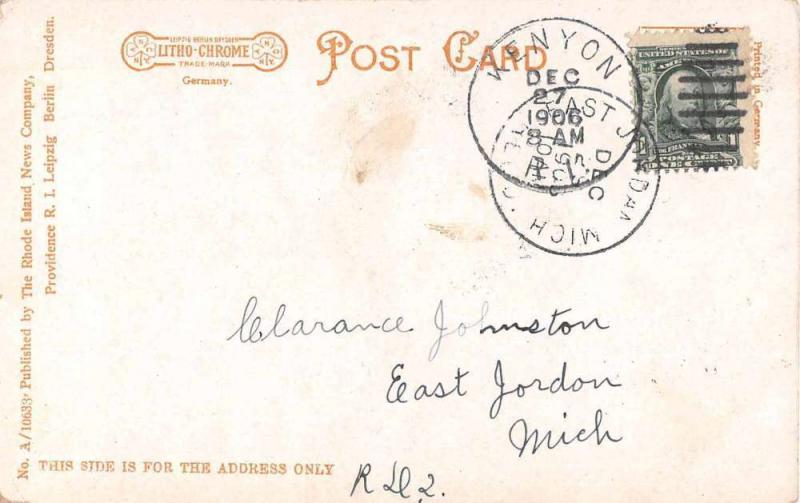 LEIPZIG BERLIN DRESDEN
LITHO-CHROME
TRADE-MARK
Germany.
POST CARD
KENYON
DEC
27
1906
8 AM
R.I.
EAST JORDAN
DEC
MICH
UNITED STATES OF
AMERICA
FRANKLIN
POSTAGE
Printed in Germany.
No. A/10633, Published by The Rhode Island News Company,
Providence R. I. Leipzig Berlin Dresden.
Clarance Johnston
East Jordon
Mich
R D 2.
THIS SIDE IS FOR THE ADDRESS ONLY